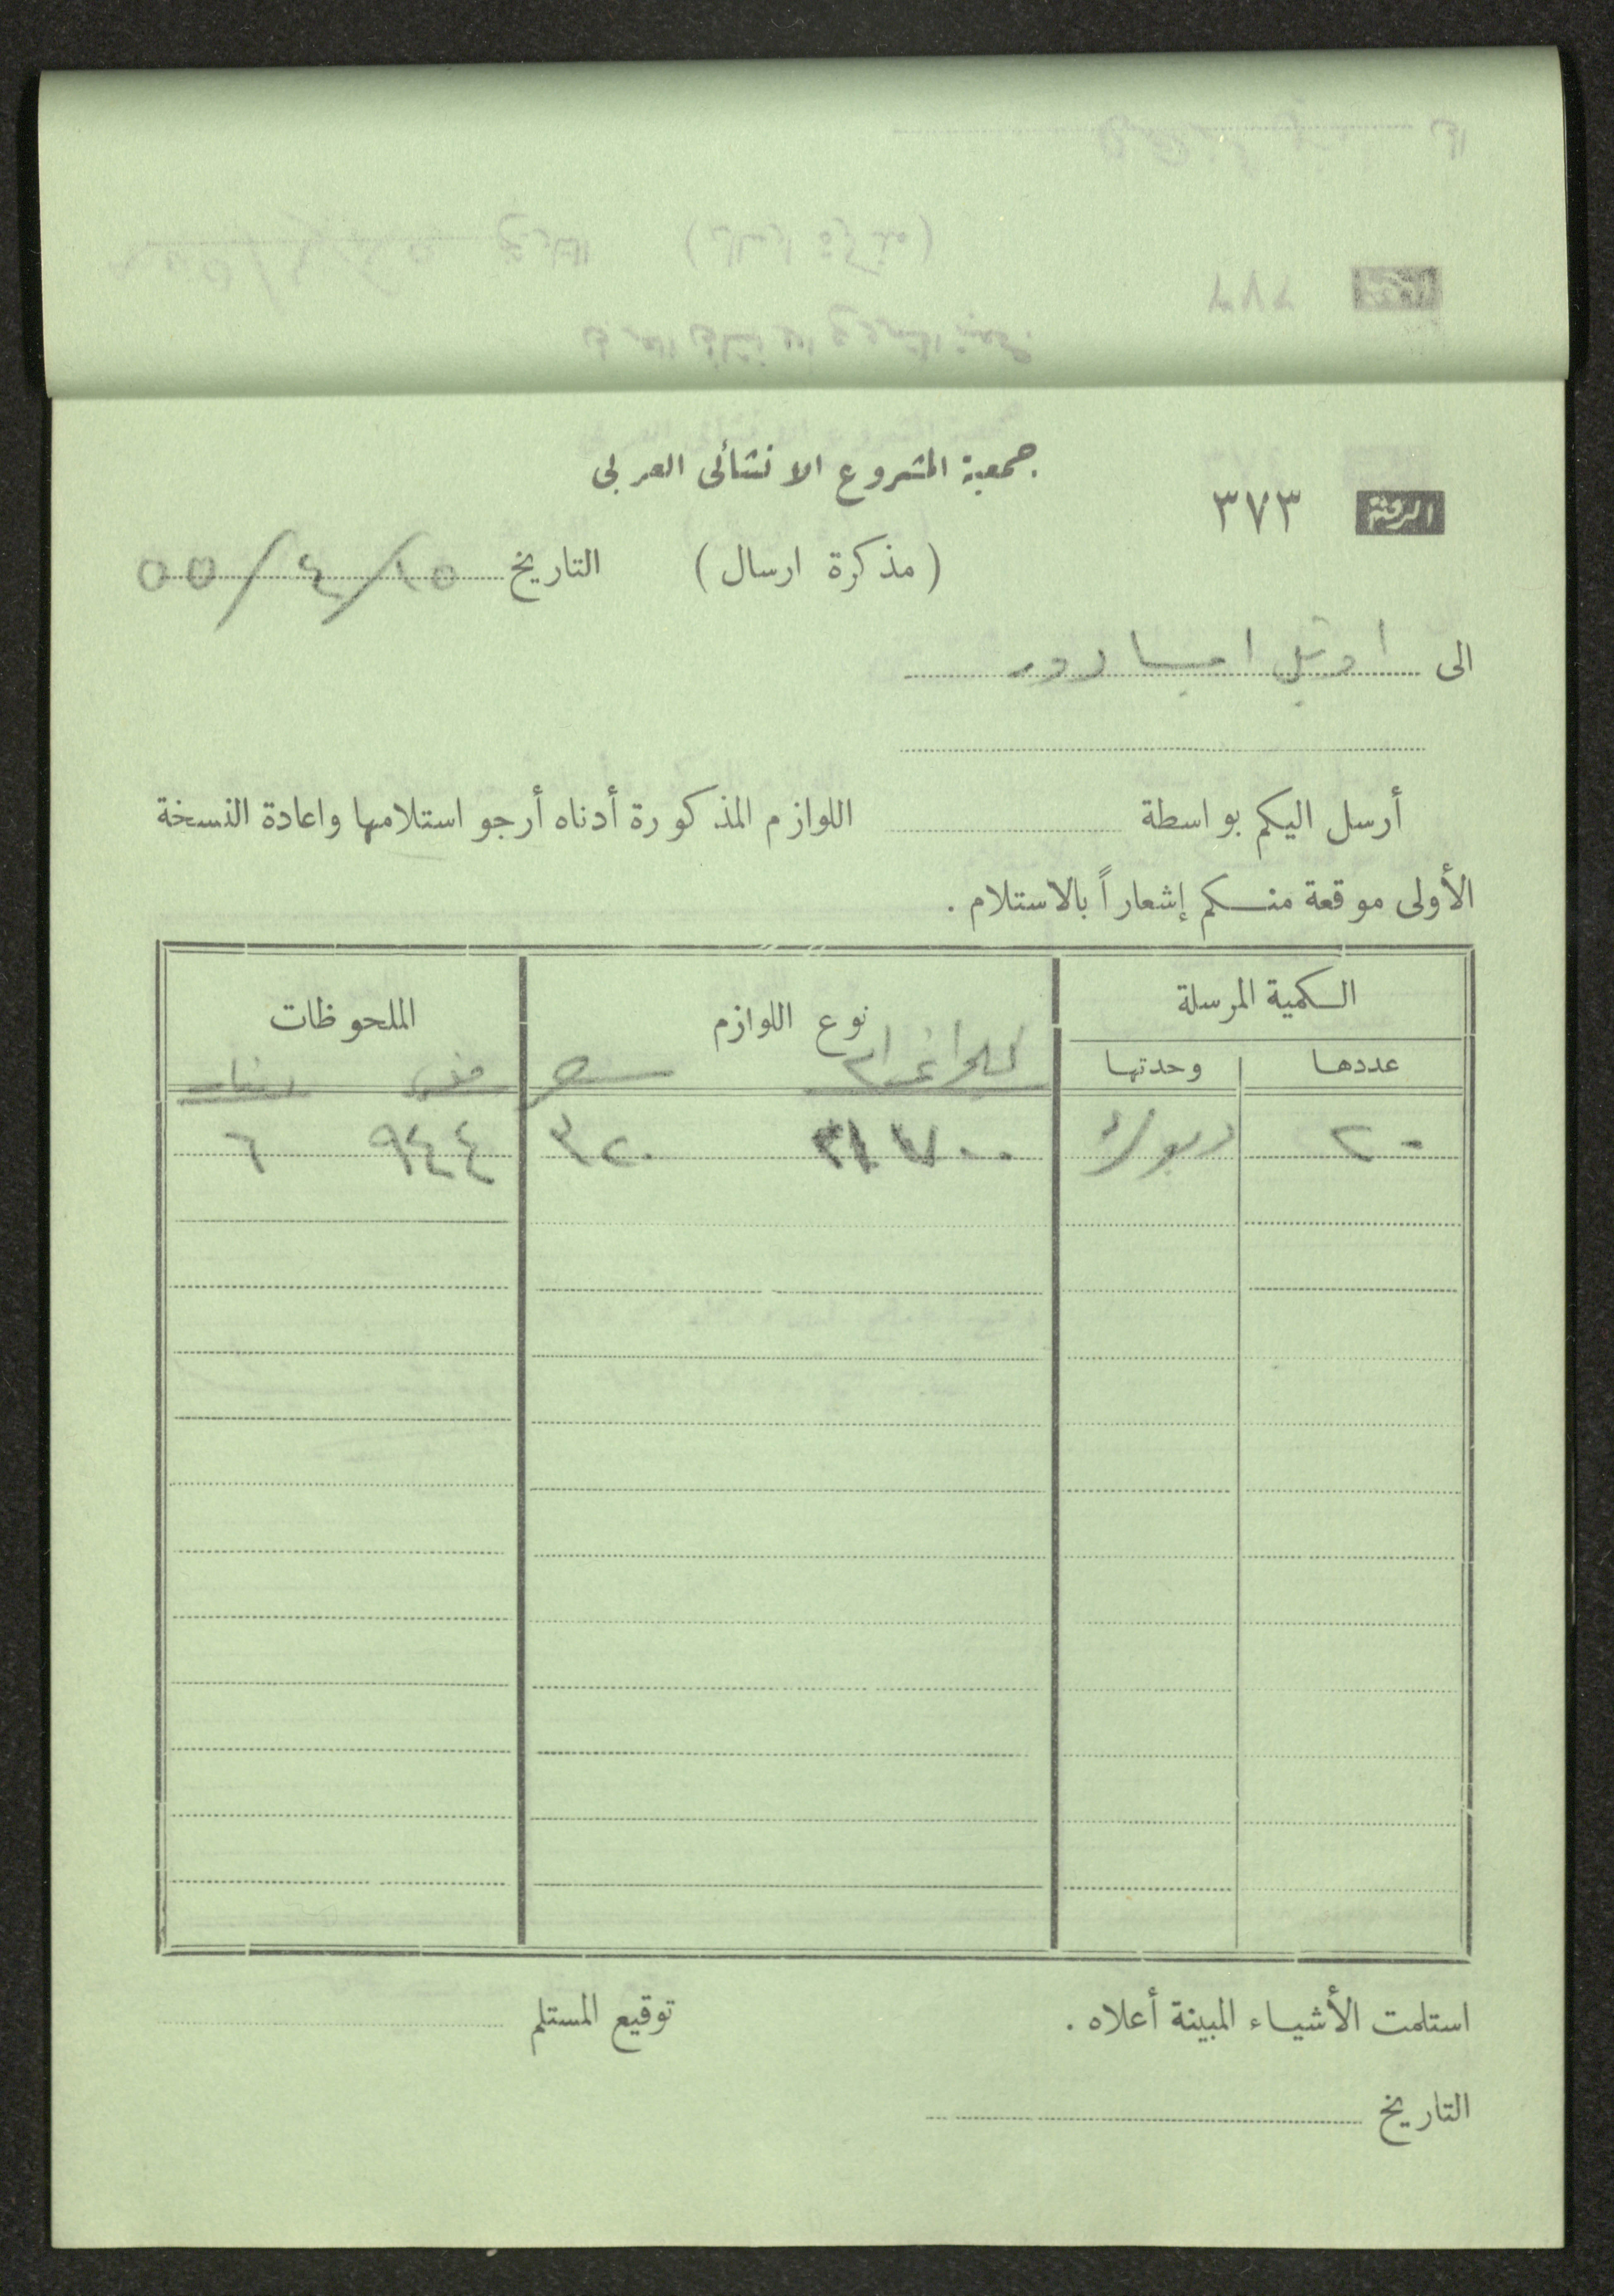 جمعية المشروع الانشائى العربى
الرقم ٣٧٣
(مذكرة ارسال) التاريخ ١٥/٤/٥٥
الى اوتيل امبسادور
أرسل اليكم بواسطة اللوازم المذكورة أدناه أرجو استلامها واعادة النسخة
الأولى موقعة منكم إشعاراً بالاستلام .
الكمية المرسلة نوع اللوازم الملحوظات
عددها وحدتها كيلو غرام سعر فلس دينار
٢٠ ٣٢٠ ٩٤٤ ٦
استلمت الأشياء المبينة أعلاه . توقيع المستلم
التاريخ